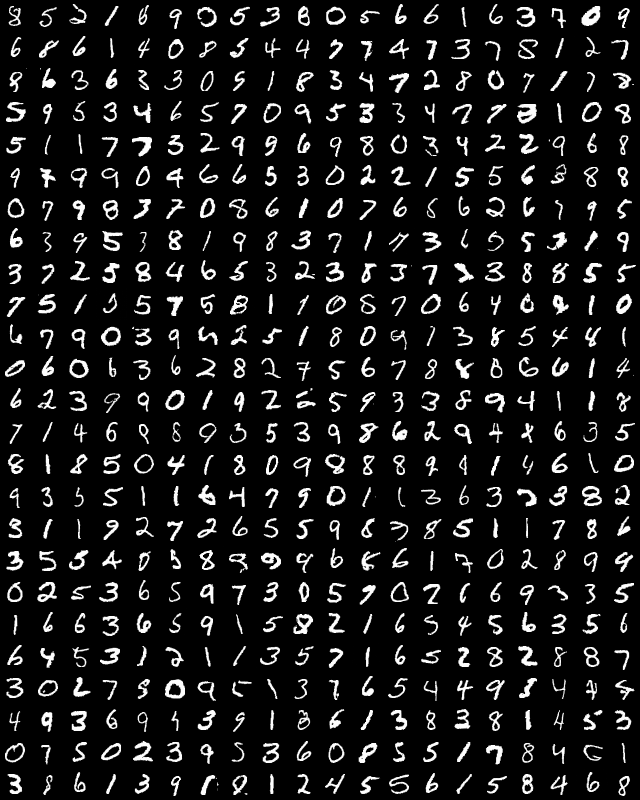 8 5 2 1 8 9 0 5 3 8 0 5 6 6 1 6 3 7 0 9
6 8 6 1 4 0 8 5 4 4 7 7 4 7 3 7 8 1 2 7
8 6 3 6 3 3 0 5 1 8 3 4 7 2 8 0 7 1 7 8
5 9 5 3 4 6 5 7 0 9 5 3 3 4 7 7 3 1 0 8
5 1 1 7 7 3 2 9 9 6 9 8 0 3 4 2 2 9 6 8
9 7 9 9 0 4 6 6 5 3 0 2 2 1 5 5 6 3 8 8
0 7 9 8 3 7 0 8 6 1 0 7 6 8 6 2 6 7 9 5
6 3 9 5 3 8 1 9 8 3 7 1 7 3 6 5 5 3 1 9
3 7 2 5 8 4 6 5 3 2 3 8 3 7 2 3 8 8 5 5
7 5 1 0 5 7 5 8 1 1 0 8 7 0 6 4 0 2 1 0
6 7 9 0 3 9 5 2 5 1 8 0 9 7 3 8 5 4 8 1
0 6 0 6 3 6 2 8 2 7 5 6 7 8 8 8 6 6 1 4
6 2 3 9 9 0 1 9 2 2 5 9 3 3 8 9 4 1 1 8
7 1 4 6 9 8 9 3 5 3 9 8 6 2 9 4 8 6 3 5
8 1 8 5 0 4 1 8 0 9 8 8 8 9 8 1 6 6 1 0
9 3 5 5 1 1 6 4 7 9 0 1 1 3 6 3 7 3 8 2
3 1 1 9 2 7 2 6 5 5 9 8 7 8 5 1 1 7 8 6
3 5 5 4 0 5 8 9 9 9 6 8 6 1 7 0 2 8 9 9
0 2 5 3 6 5 9 7 3 0 5 7 0 7 6 6 9 3 3 5
1 6 6 3 6 5 9 1 5 8 2 1 6 5 4 5 6 3 5 6
6 4 5 3 1 2 1 1 3 5 7 1 6 5 2 8 2 8 8 7
3 0 2 7 8 0 9 5 1 3 7 6 5 4 4 9 3 4 4 5
4 9 3 6 9 4 3 9 1 8 6 1 3 8 3 8 1 4 5 3
0 7 5 0 2 3 9 5 3 6 0 8 5 5 1 7 8 4 6 1
3 8 6 1 3 9 1 0 1 2 4 5 5 6 1 5 8 4 6 8